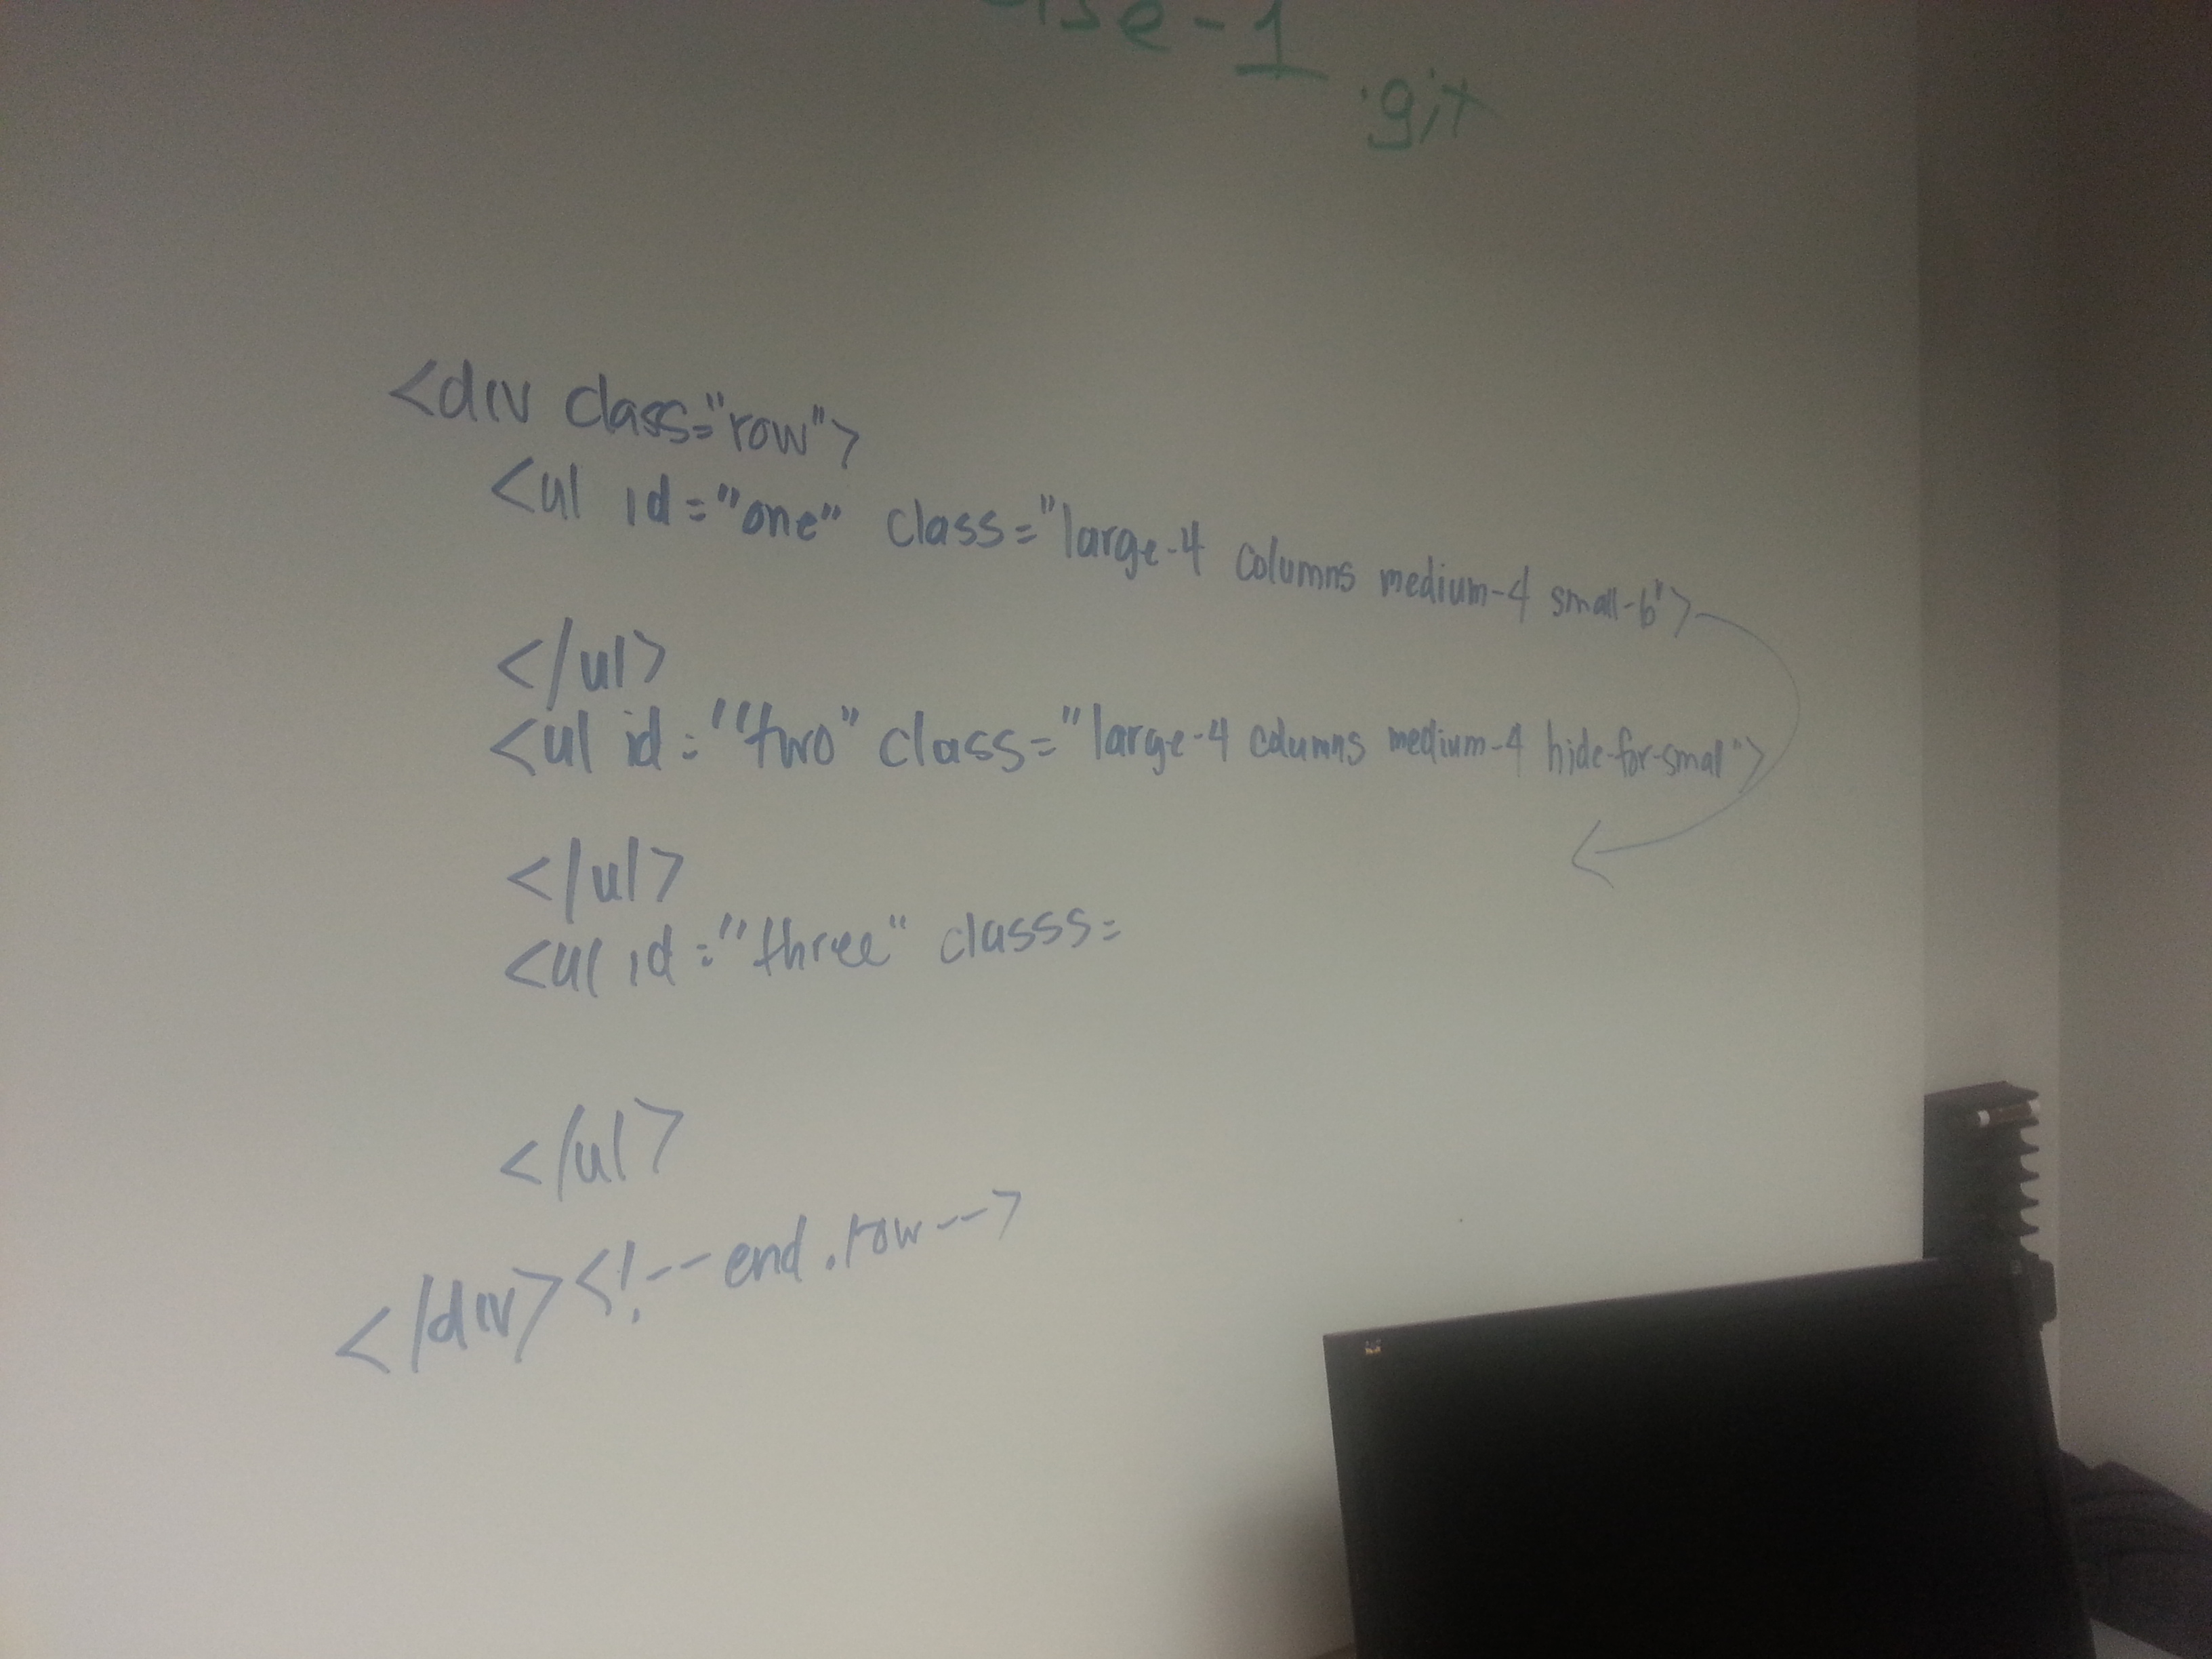 -1
.git
<div class="row">
<ul id="one" class="large-4 columns medium-4 small-6">
</ul>
<ul id="two" class="large-4 columns medium-4 hide-for-smal">
</ul>
<ul id="three" classs=
</ul>
</div><!-- end .row -->